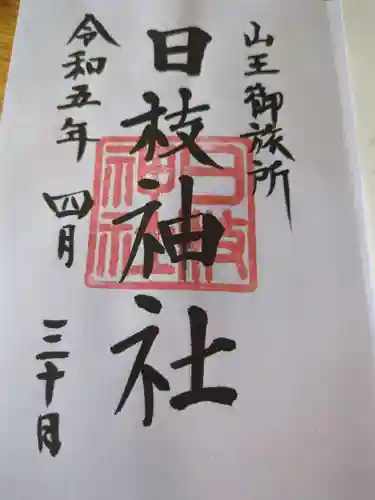 山王御旅所
日枝神社
日枝
神社
令和五年
四月
三十日